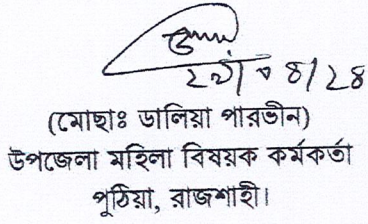 (মোছাঃ ডালিয়া পারভীন)
উপজেলা মহিলা বিষয়ক কর্মকর্তা
পুঠিয়া, রাজশাহী।